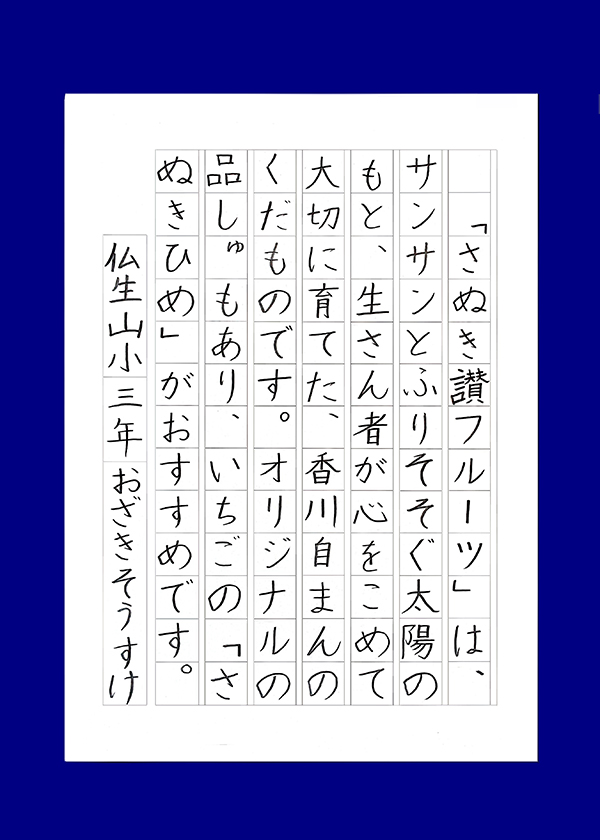 「さぬき讃フルーツ」は、
サンサンとふりそそぐ太陽の
もと、生さん者が心をこめて
大切に育てた、香川自まんの
くだものです。オリジナルの
品しゅもあり、いちごの「さ
ぬきひめ」がおすすめです。
仏生山小三年おざきそうすけ